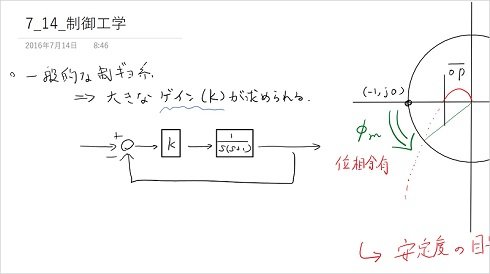 7_14_制御工学
2016年7月14日 8:46
一般的な制ギョ系.
⇒ 大きなゲイン(k)が求められる.
+
−
k
1
s(s+1)
(-1, j0)
OP
Φm
位相余有
↳ 安定度の目